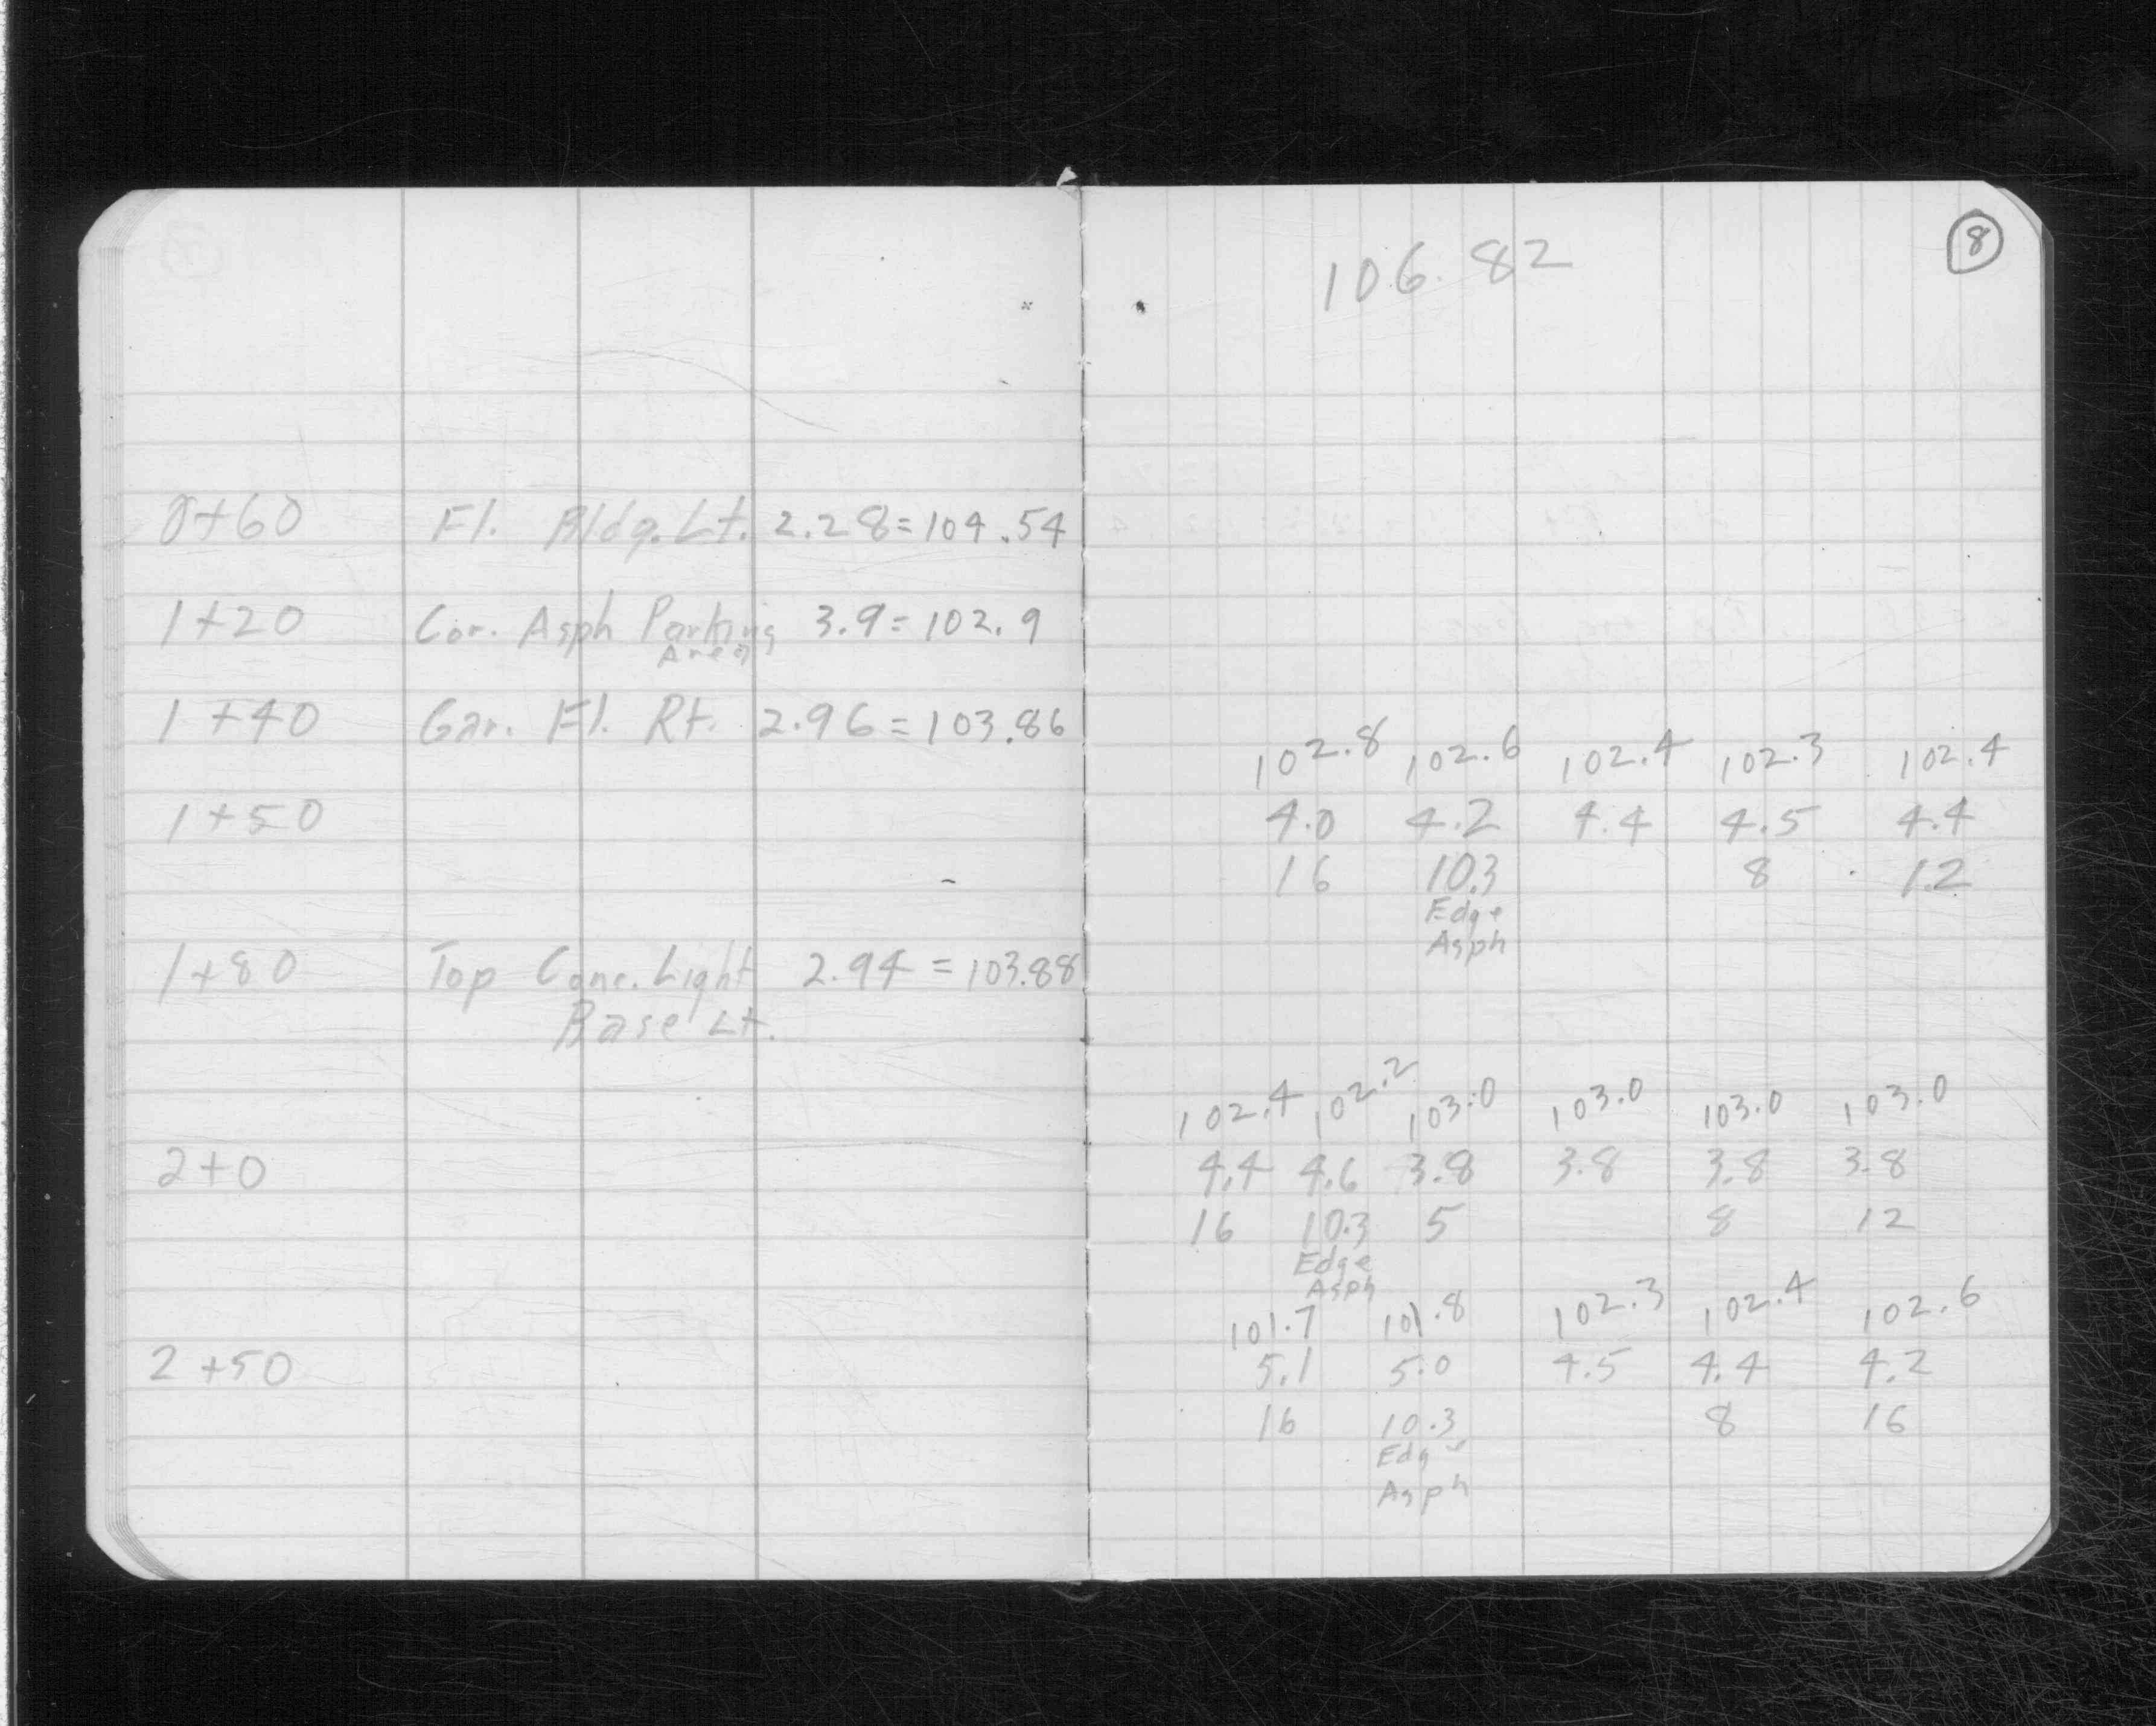 8
106.82
0+60 Fl. Bldg. Lt. 2.28 = 104.54
1+20 Cor. Asph Parking 3.9 = 102.9
Area
1+40 Gar. Fl. Rt. 2.96 = 103.86
102.8 102.6 102.4 102.3 102.4
1+50 4.0 4.2 4.4 4.5 4.4
16 10.3 8 12
Edge
Asph
1+80 Top Conc. Light 2.94 = 103.88
Base Lt.
102.4 102.2 103.0 103.0 103.0 103.0
2+0 4.4 4.6 3.8 3.8 3.8 3.8
16 10.3 5 8 12
Edge
Asph
101.7 101.8 102.3 102.4 102.6
2+50 5.1 5.0 4.5 4.4 4.2
16 10.3 8 16
Edge
Asph